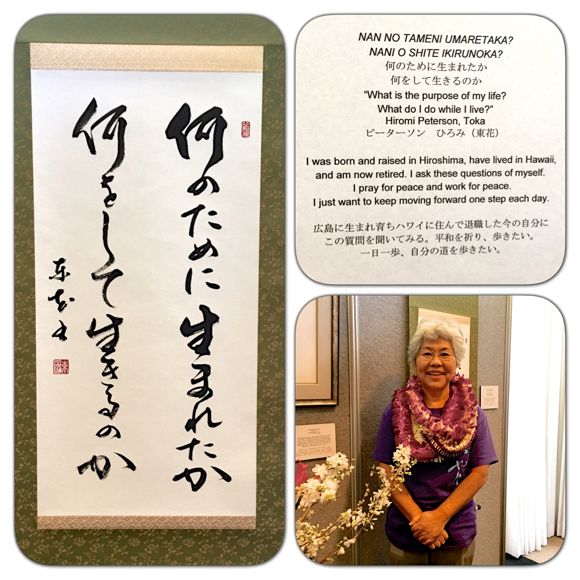 何のために生まれたか
何をして生きるのか
NAN NO TAMENI UMARETAKA?
NANI O SHITE IKIRUNOKA?
何のために生まれたか
何をして生きるのか
"What is the purpose of my life?
What do I do while I live?"
Hiromi Peterson, Toka
ピーターソン　ひろみ（東花）
I was born and raised in Hiroshima, have lived in Hawaii,
and am now retired. I ask these questions of myself.
I pray for peace and work for peace.
I just want to keep moving forward one step each day.
広島に生まれ育ちハワイに住んで退職した今の自分に
この質問を聞いてみる。平和を祈り、歩きたい。
一日一歩、自分の道を歩きたい。